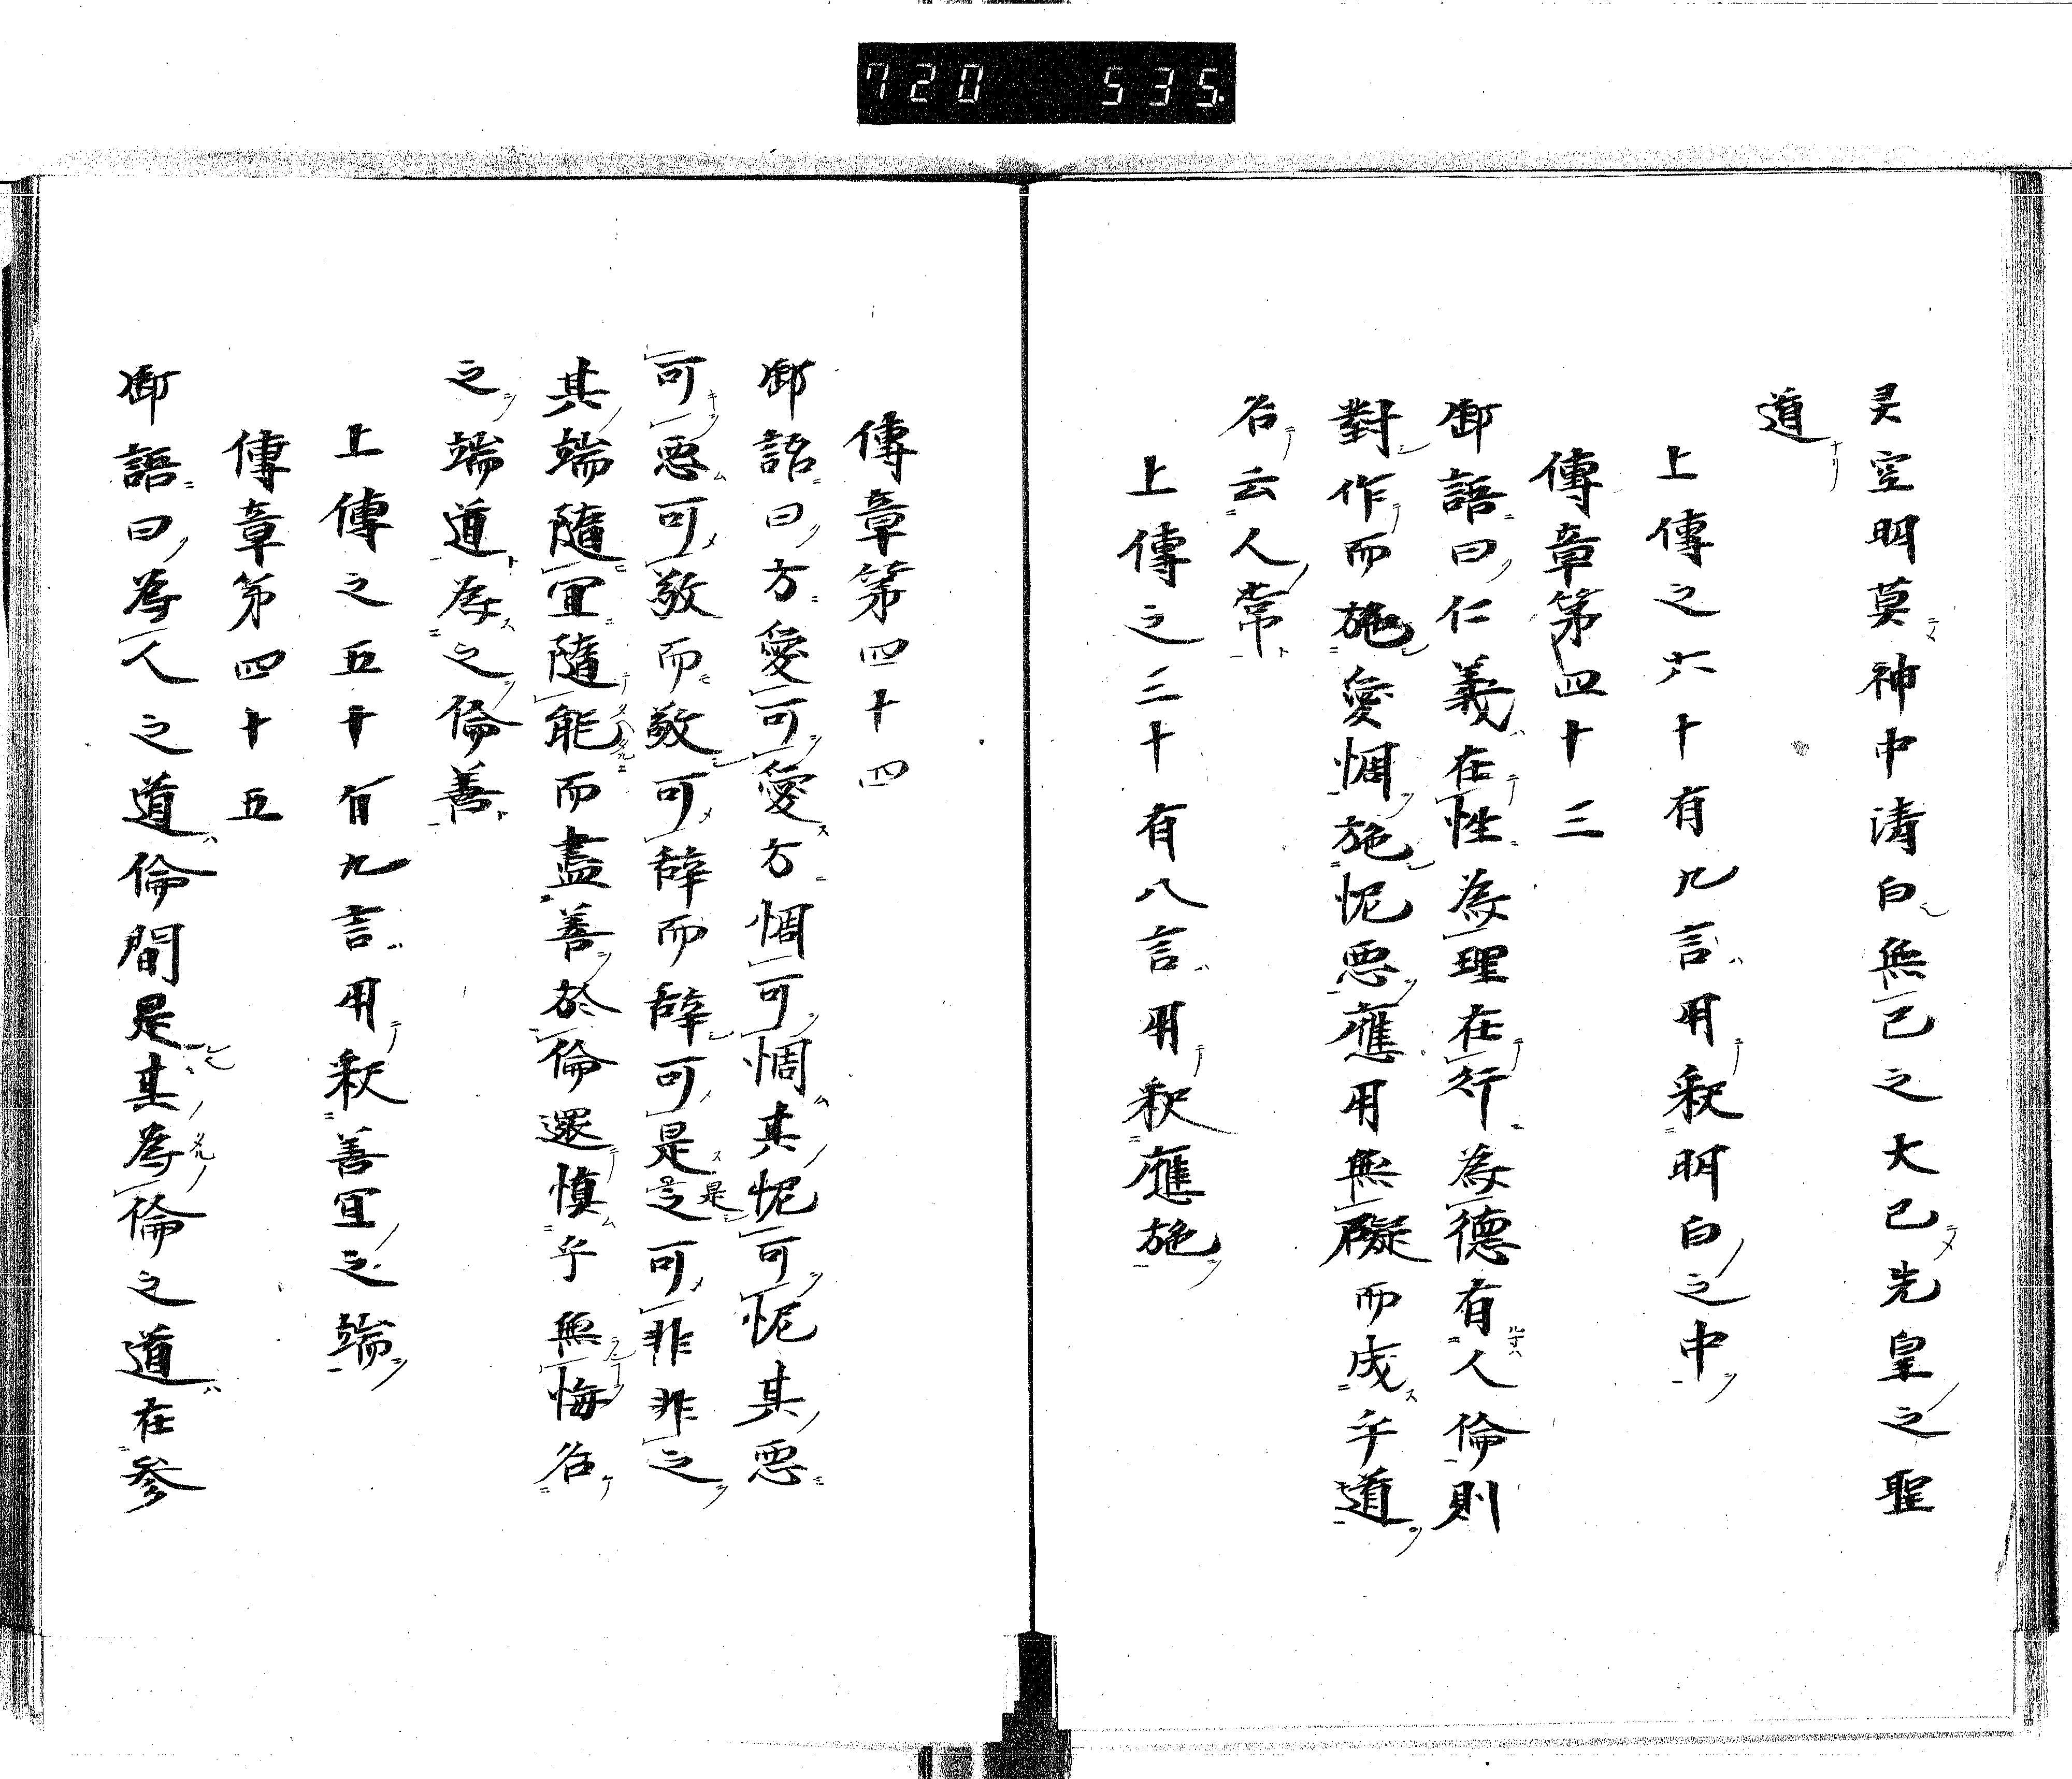 720 535.
灵空明莫神中清白無已之大已先皇之聖
道
上傳之六十有九言用釈明白之中
傳章第四十三
御語曰仁義在性為理在行為德有人倫則
對作而施愛惆施怩惡應用無礙而成乎道
名云人常
上傳之三十有八言用釈應施
傳章第四十四
御語曰方愛可愛方惆可惆其怩可怩其惡
可惡可敬而敬可辭而辭可是是之可非非之
其端隨宜隨能而盡善於倫還慎乎無悔名
之端道為之倫善
上傳之五十有九言用釈善宜之端
傳章第四十五
御語曰為人之道倫間是其為倫之道在參